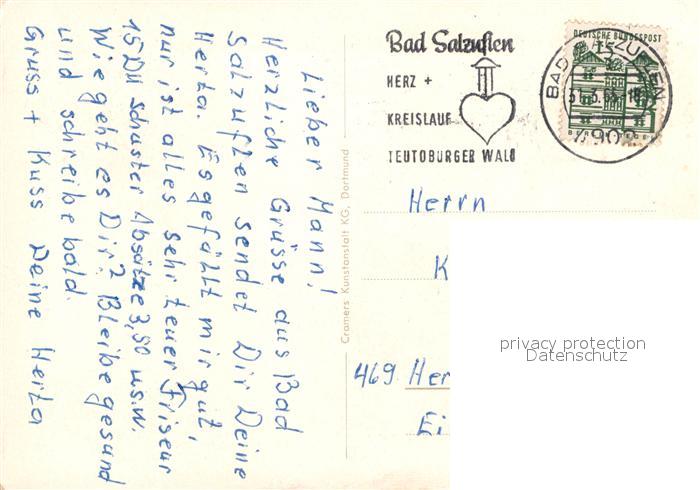 Lieber Mann!
Herzliche Grüsse aus Bad
Salzuflen sendet Dir Deine
Herta. Es gefällt mir gut,
nur ist alles sehr teuer Friseur
15 DM Schuster Absätze 3,50 usw.
Wie geht es Dir? Bleibe gesund
und schreibe bald.
Gruss + Kuss Deine Herta
Cramers Kunstanstalt KG, Dortmund
Bad Salzuflen
HERZ +
KREISLAUF
TEUTOBURGER WALD
DEUTSCHE BUNDESPOST
BAD SALZUFLEN
Herrn
K
469 Her
Ei
privacy protection
Datenschutz